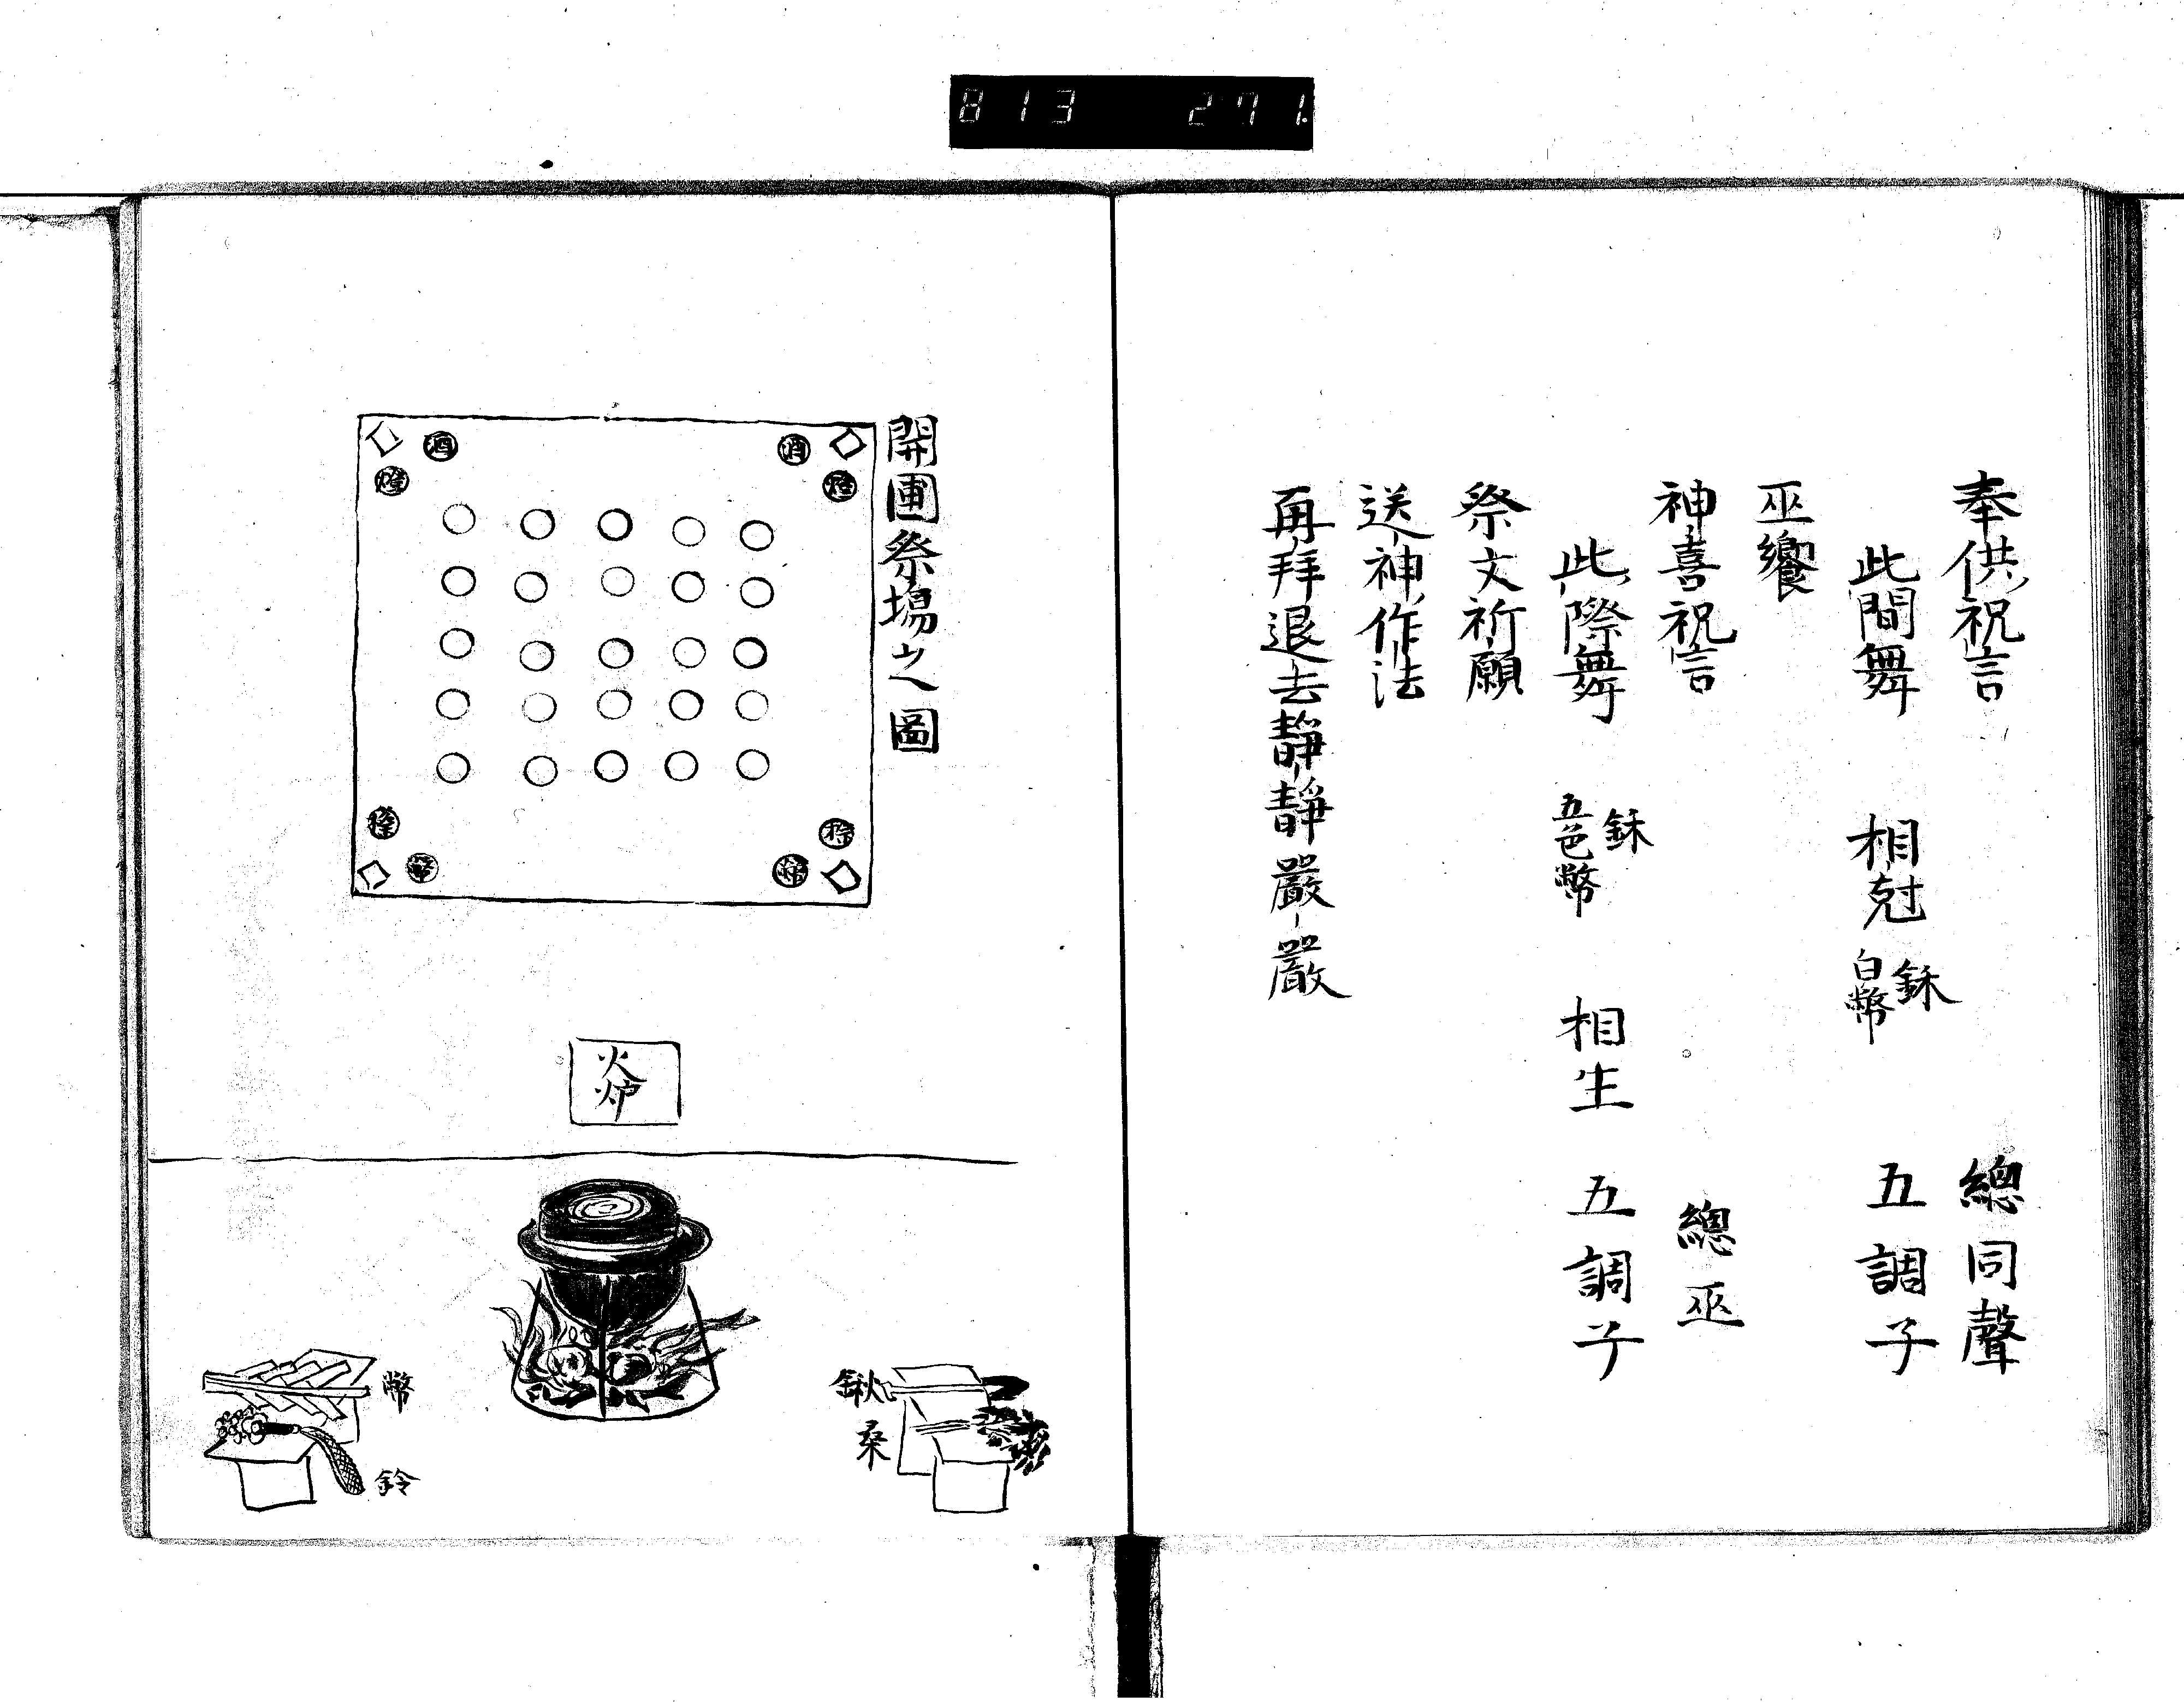 813 271
奉供祝言 總同聲
此間舞 相尅 鉌 白幣 五調子
巫饗
神喜祝言 總巫
此際舞 鉌 五色幣 相生 五調子
祭文祈願
送神作法
再拜退去靜靜嚴嚴
開圃祭場之圖
酒
酒
燈
燈
幣
火炉
鍬
桑
幣
鈴